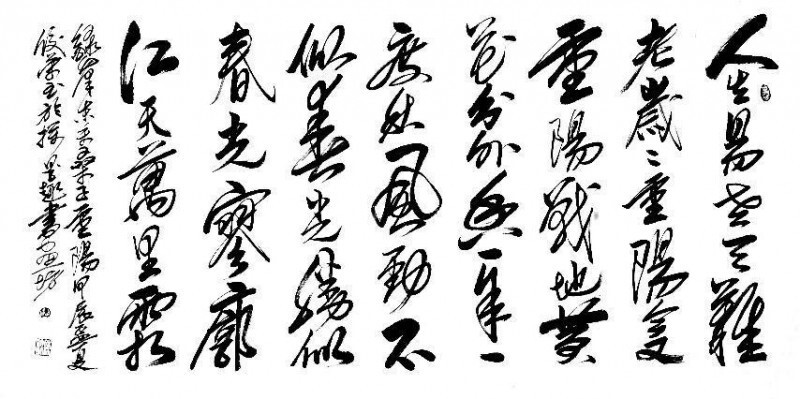 人生易老天難
老歲々重陽今又
重陽戰地黄
花分外香一年一
度秋風勁不
似春光勝似
春光寥廓
江天萬里霜
采桑子重陽甲辰夏
墨趣書画坊